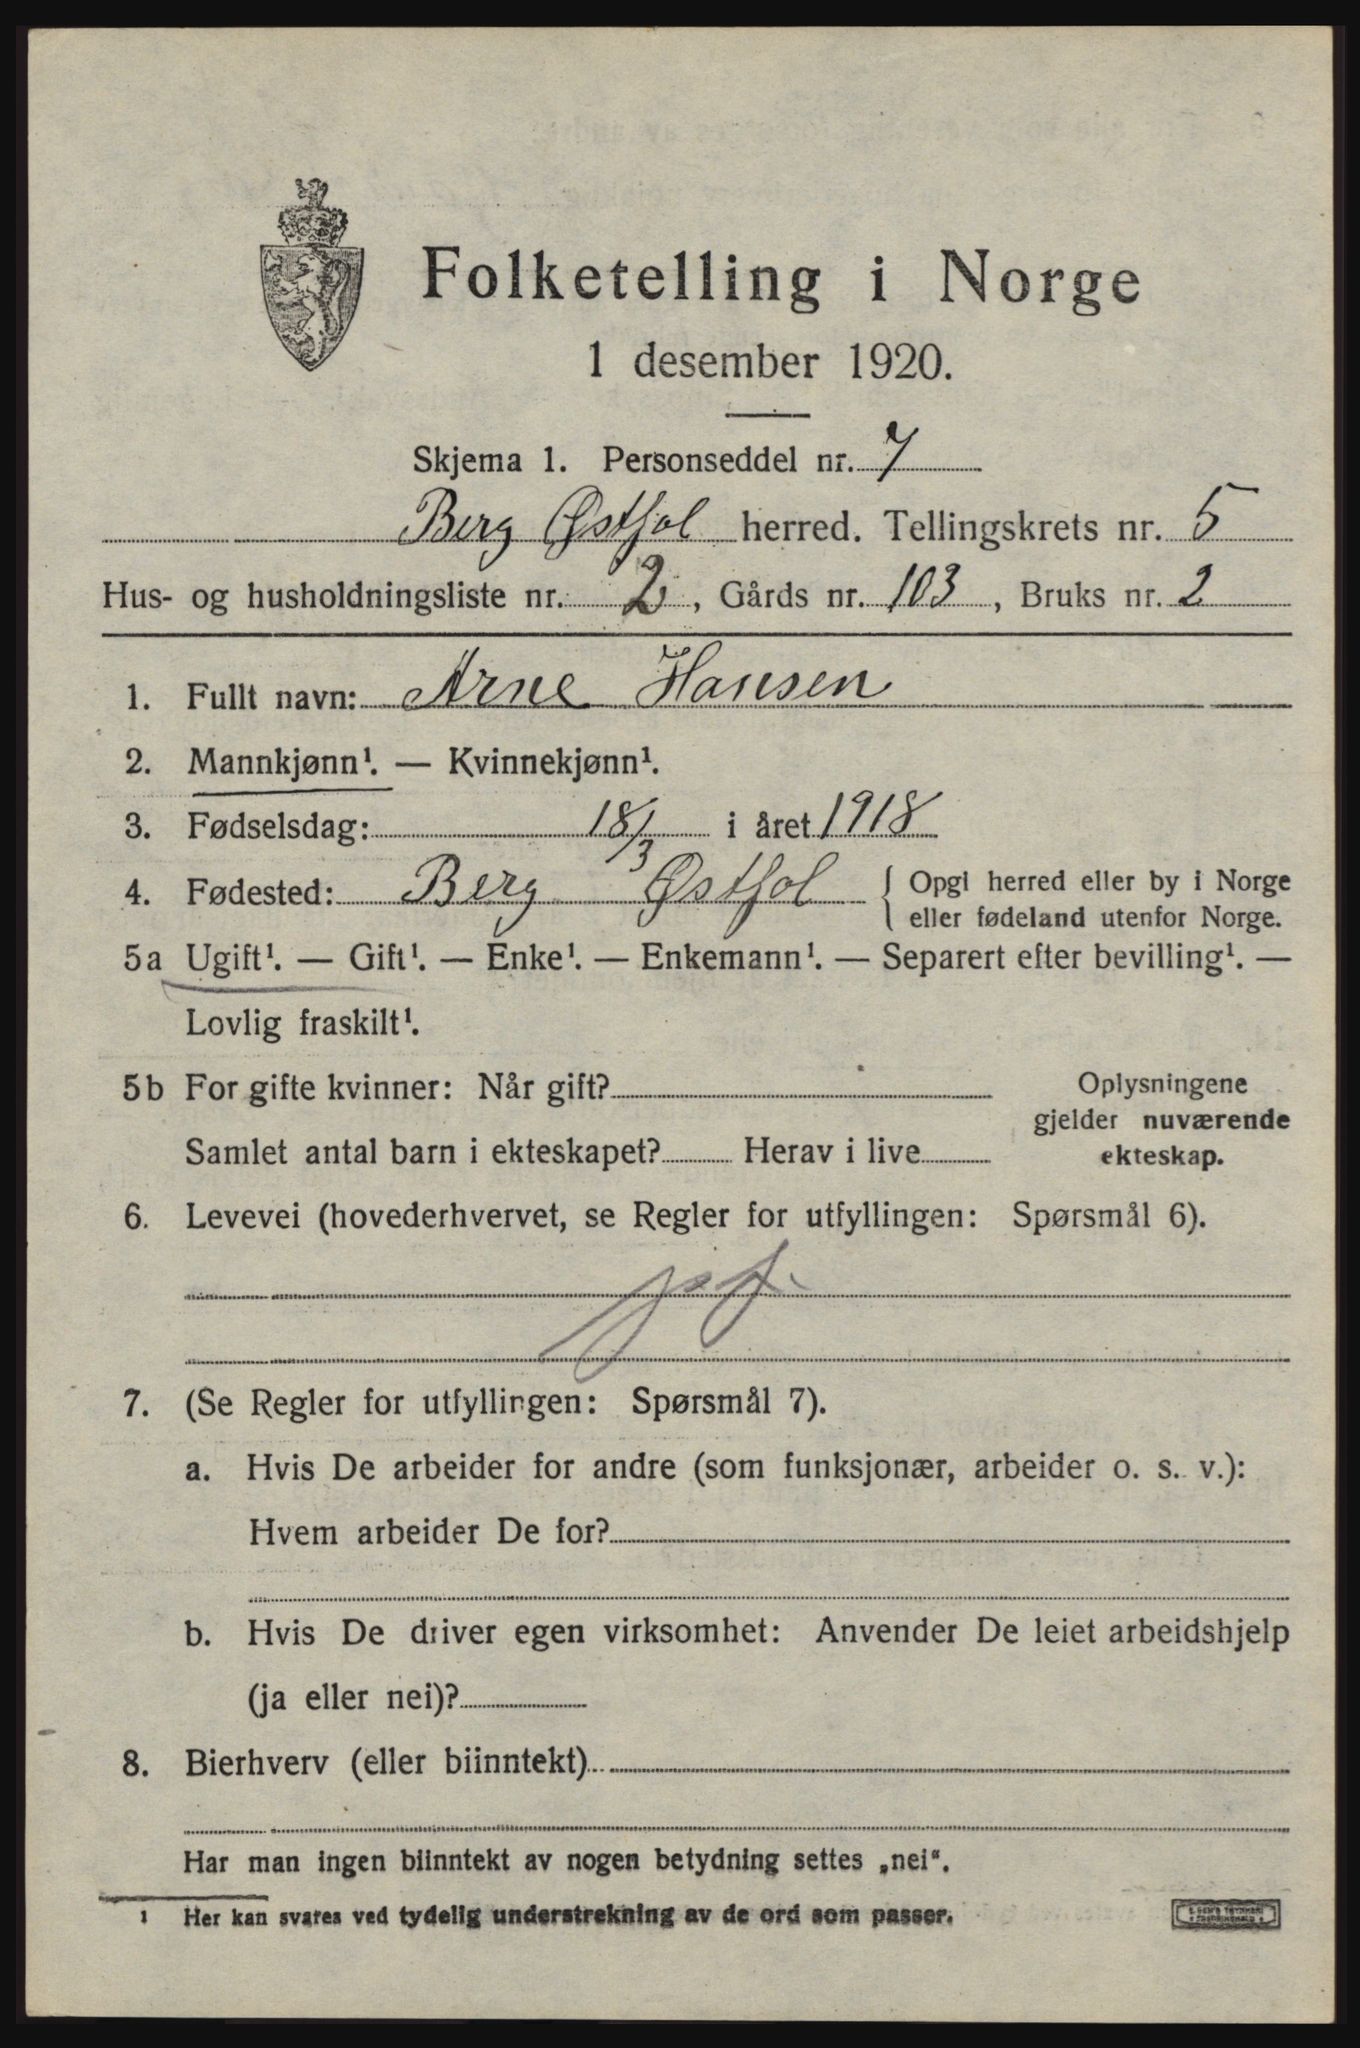 Folketelling i Norge
1 desember 1920.
Skjema 1. Personseddel nr. 7
Berg Østfol herred. Tellingskrets nr. 5
Hus- og husholdningsliste nr. 2, Gårds nr. 103, Bruks nr. 2
1. Fullt navn: Arne Hansen
2. Mannkjønn¹. — Kvinnekjønn¹.
3. Fødselsdag: 18/3 i året 1918
4. Fødested: Berg Østfol { Opgi herred eller by i Norge
eller fødeland utenfor Norge.
5a Ugift¹. — Gift¹. — Enke¹. — Enkemann¹. — Separert efter bevilling¹. —
Lovlig fraskilt¹.
5b For gifte kvinner: Når gift?
Oplysningene
gjelder nuværende
ekteskap.
Samlet antal barn i ekteskapet? Herav i live
6. Levevei (hovederhvervet, se Regler for utfyllingen: Spørsmål 6).
7. (Se Regler for utfyllingen: Spørsmål 7).
a. Hvis De arbeider for andre (som funksjonær, arbeider o. s. v.):
Hvem arbeider De for?
b. Hvis De driver egen virksomhet: Anvender De leiet arbeidshjelp
(ja eller nei)?
8. Bierhverv (eller biinntekt)
Har man ingen biinntekt av nogen betydning settes „nei“.
¹ Her kan svares ved tydelig understrekning av de ord som passer.